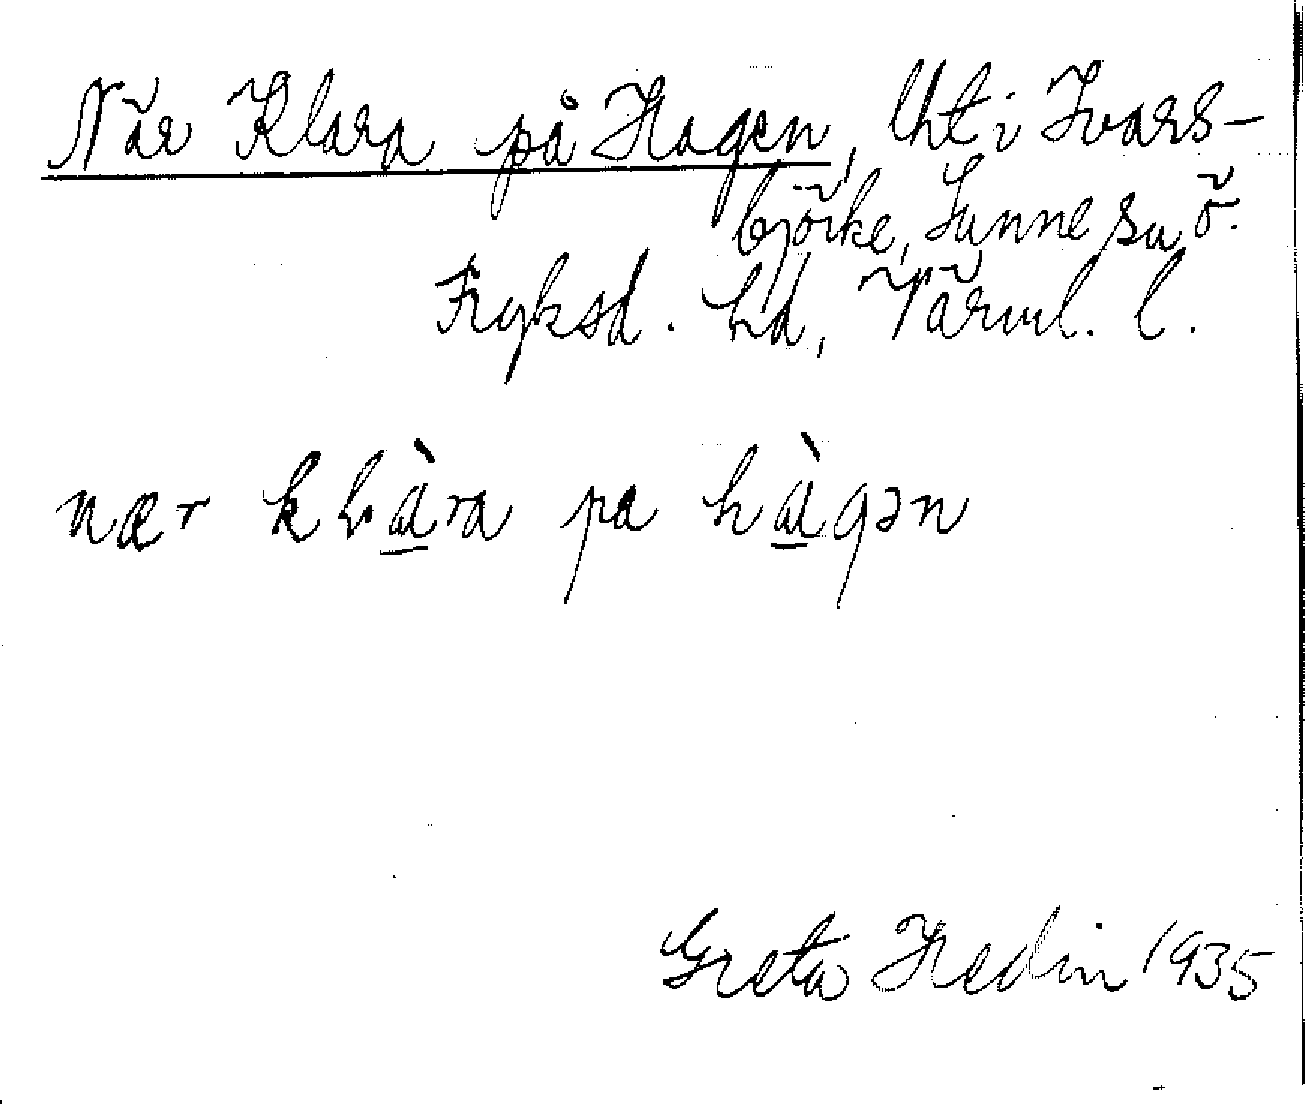 När Klara på Hagen, lht i Ivars-
björke, Sunne sn, ö.
Fryksd. hd, Värml. l.
nær kɽàra pa hàgən
Greta Hedin 1935